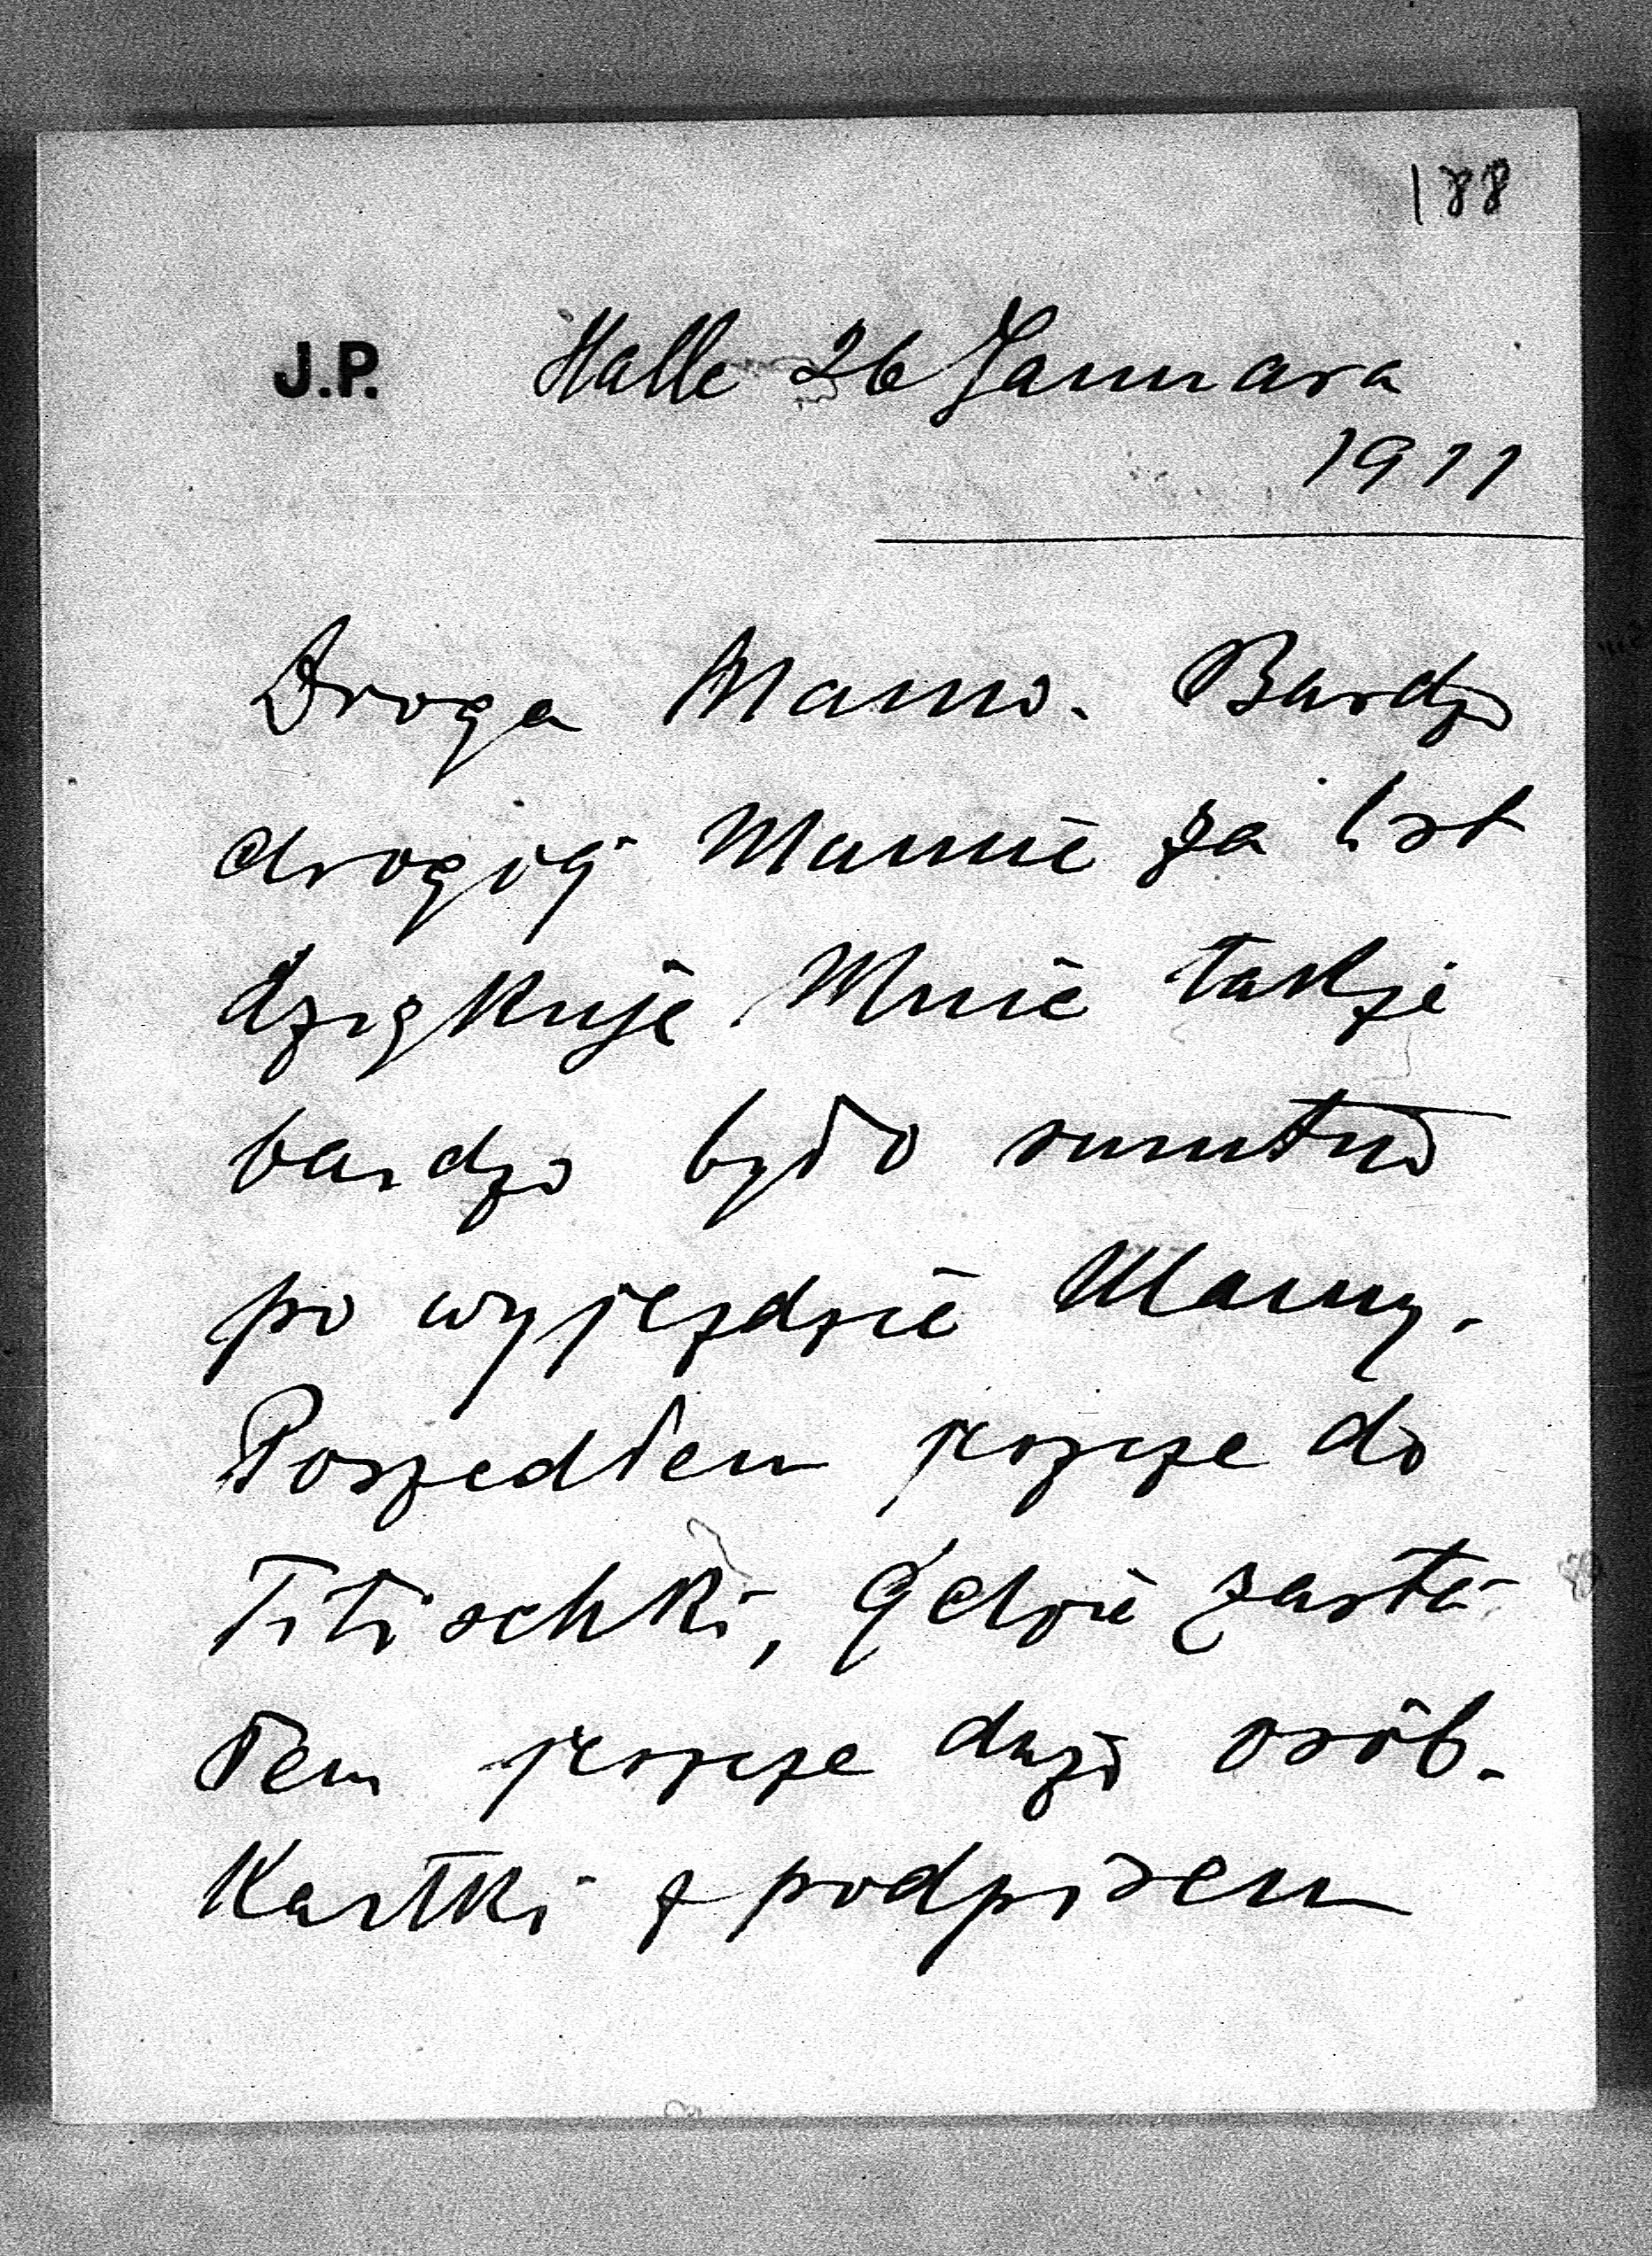 188
J.P. Halle 26 Januara
1911
Droga Mamo. Bardzo
drogiej Mamie za list
dziękuje. Mnie także
bardzo było smutno
po wyjezdzie Mamy.
Poszedłem jeszcze do
Titischki, gdzie zasta-
łem jeszcze dużo osób.
Kartki z podpisem